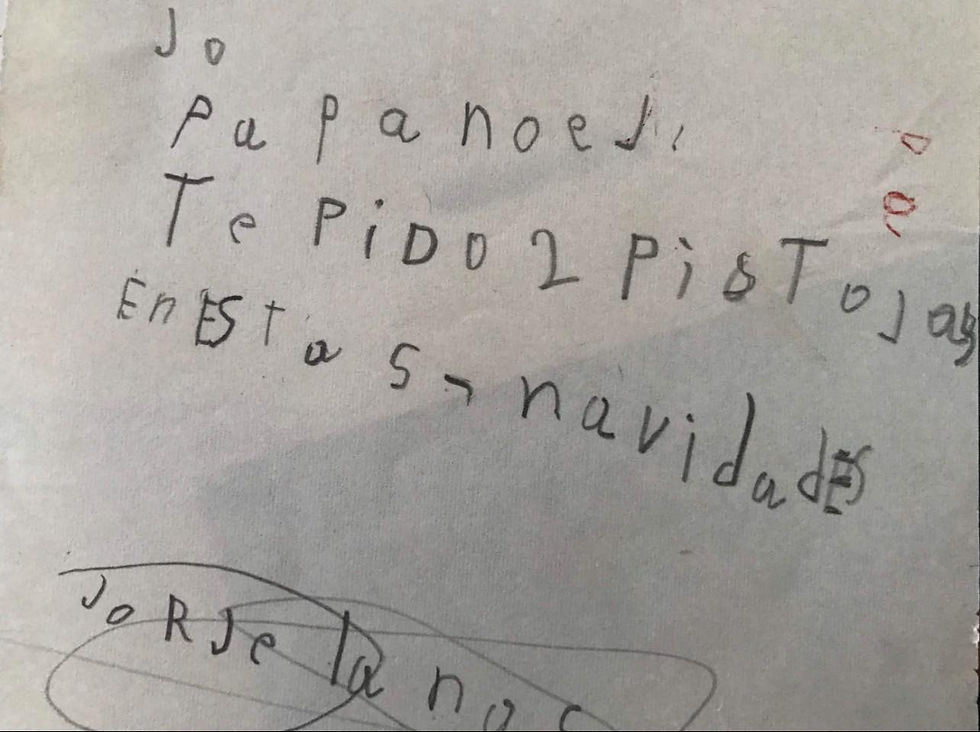 Jo
Papa noeJ,
Te PiDo 2 PisToJas
En ESTas, navidadES
JoRJe la
Pe